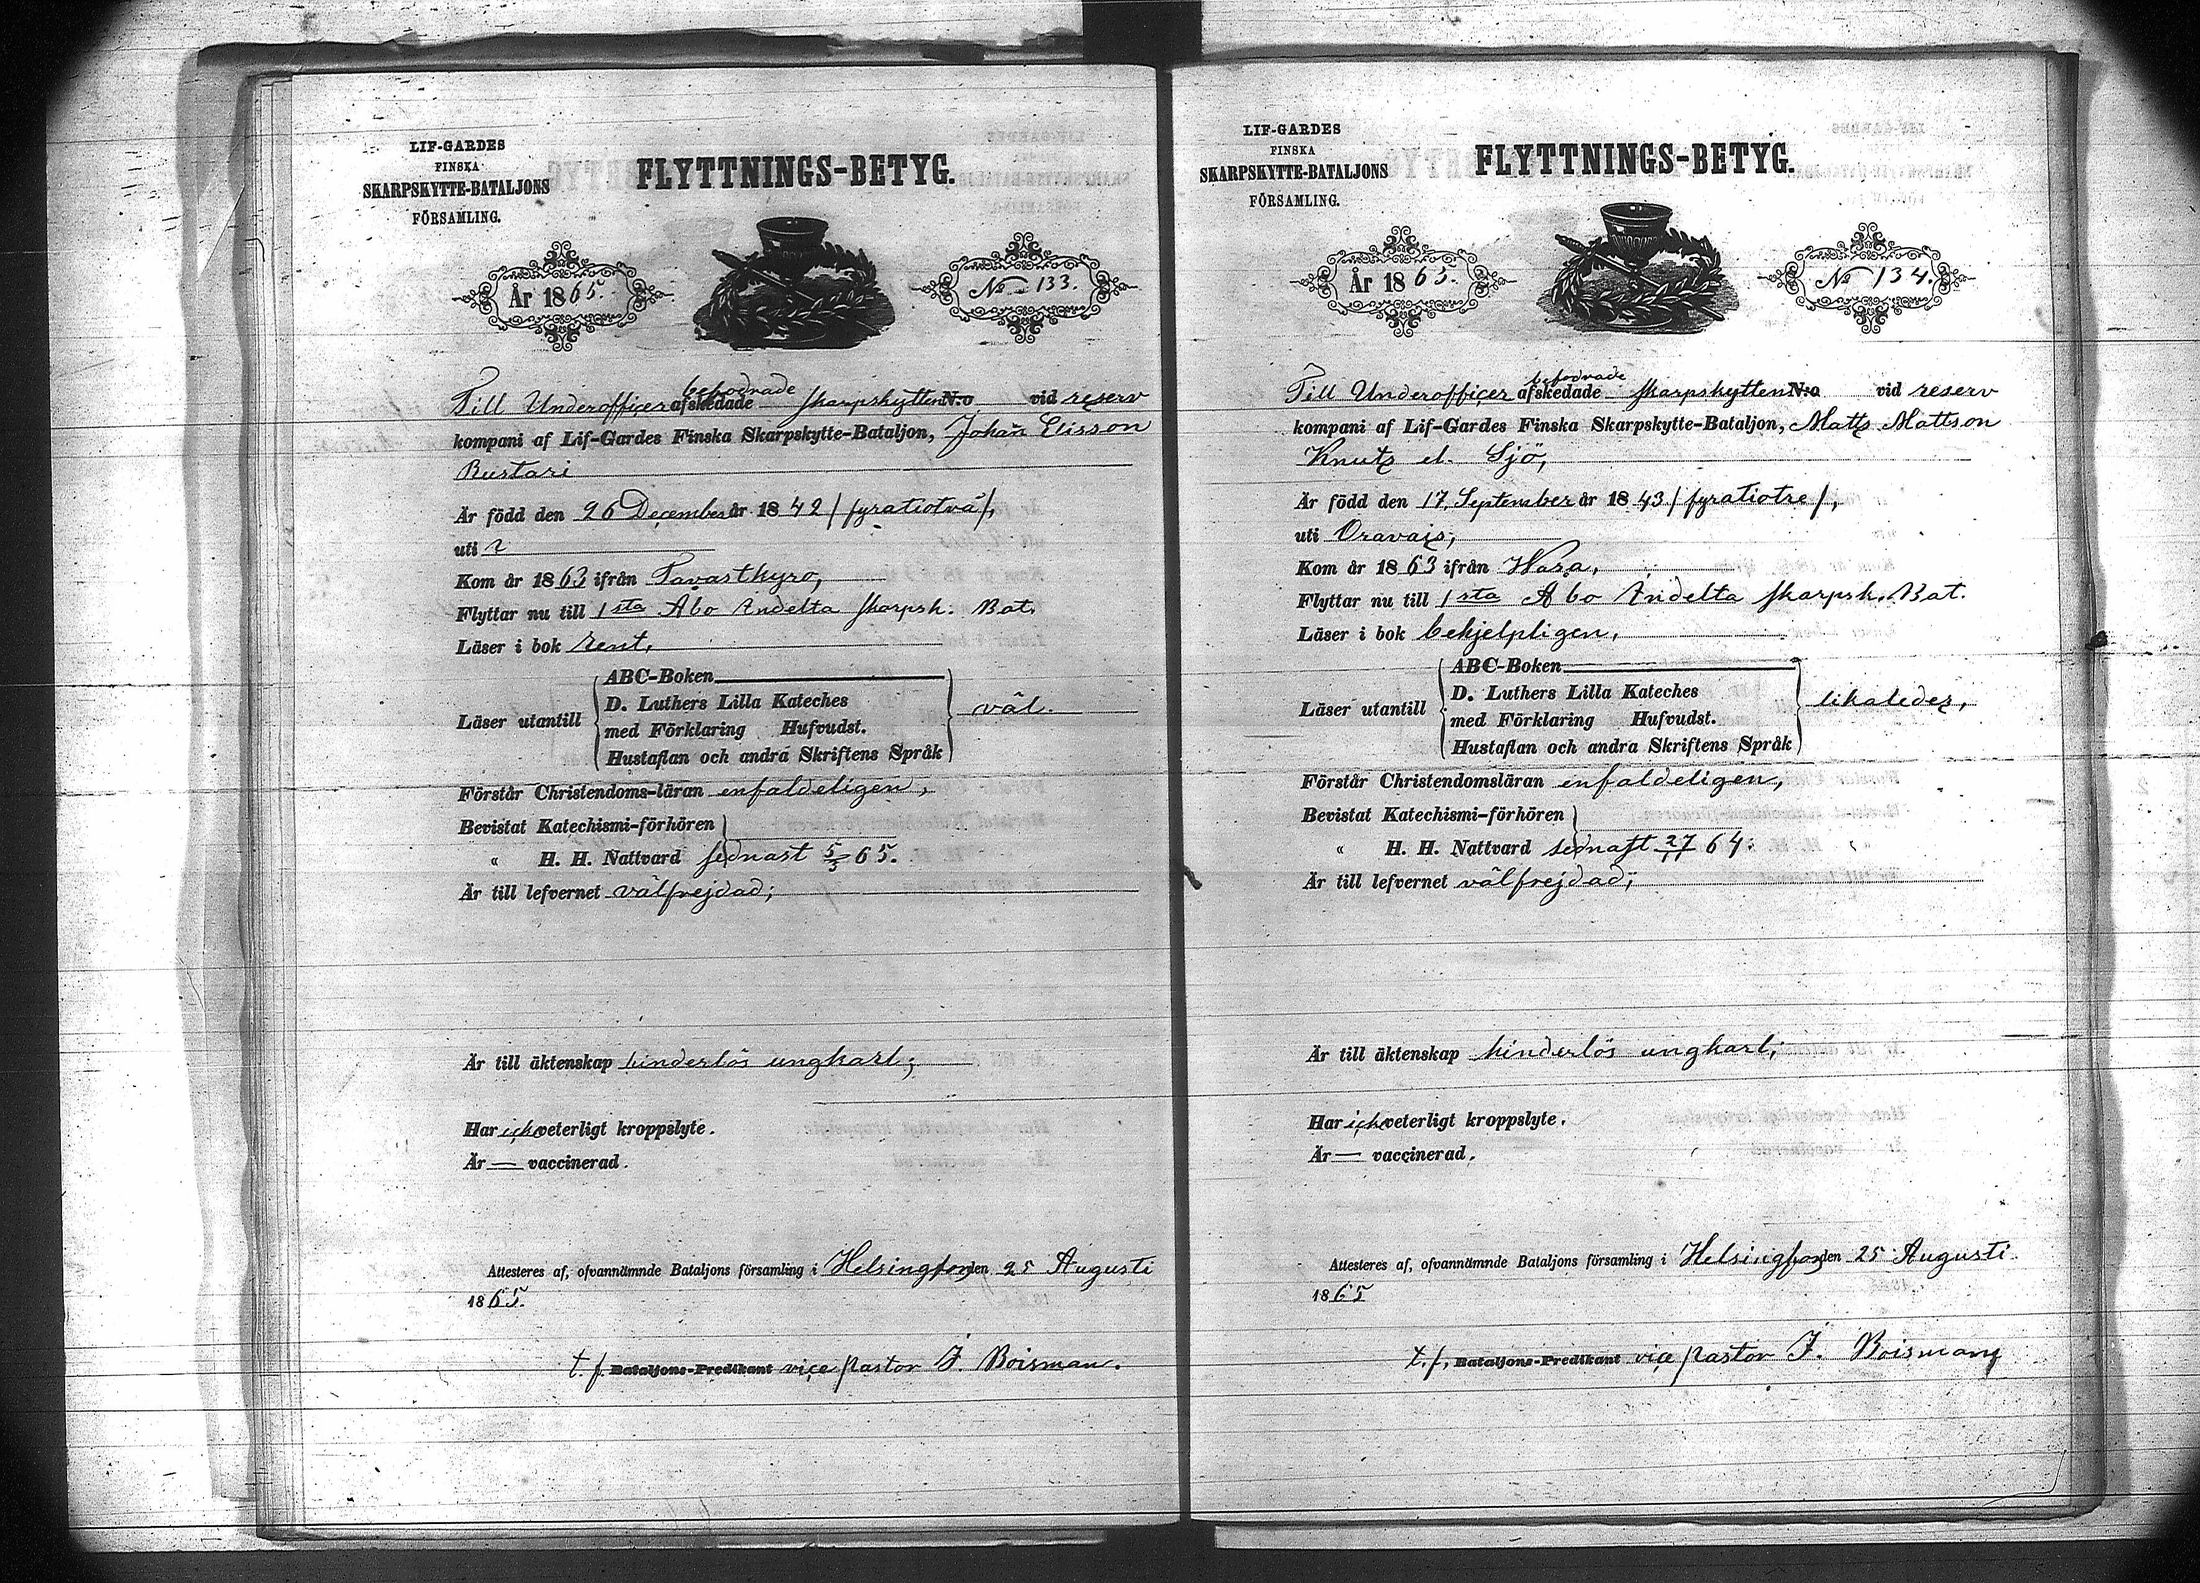 LIF-GARDES
FINSKA
SKARPSKYTTE-BATALJONS
FÖRSAMLING.
FLYTTNINGS-BETYG.
År 1865.
No 133.
befodrade
Till Underofficer afskedade skarpskytten N:o vid reserv
kompani af Lif-Gardes Finska Skarpskytte-Bataljon, Johan Elisson
Rustari
Är född den 26 December år 1842 / fyratiotvå /,
uti
Kom år 1863 ifrån Tavastkyro,
Flyttar nu till 1sta Åbo Indelta skarpsk. Bat.
Läser i bok rent,
Läser utantill
ABC-Boken
D. Luthers Lilla Kateches
med Förklaring Hufvudst.
Hustaflan och andra Skriftens Språk
väl.
Förstår Christendoms-läran enfaldeligen,
Bevistat Katechismi-förhören
« H. H. Nattvard sednast 5/3 65.
Är till lefvernet välfrejdad;
Är till äktenskap hinderlös ungkarl;
Har ick veterligt kroppslyte.
Är — vaccinerad.
Attesteres af, ofvannämnde Bataljons församling i Helsingfors den 25 Augusti
1865.
t. f. Bataljons-Predikant vice pastor F. Boisman.
LIF-GARDES
FINSKA
SKARPSKYTTE-BATALJONS
FÖRSAMLING.
FLYTTNINGS-BETYG.
År 1865.
No 134.
befodrade
Till Underofficer afskedade skarpskytten N:o vid reserv
kompani af Lif-Gardes Finska Skarpskytte-Bataljon, Matts Mattson
Knuts el. Sjö,
Är född den 17 September år 1843 / fyratiotre /,
uti Oravais,
Kom år 1863 ifrån Wasa,
Flyttar nu till 1sta Åbo Indelta skarpsk. Bat.
Läser i bok behjelpligen,
Läser utantill
ABC-Boken
D. Luthers Lilla Kateches
med Förklaring Hufvudst.
Hustaflan och andra Skriftens Språk
likaledes,
Förstår Christendomsläran enfaldeligen,
Bevistat Katechismi-förhören
« H. H. Nattvard sednast 27/11 64.
Är till lefvernet välfrejdad;
Är till äktenskap hinderlös ungkarl;
Har ick veterligt kroppslyte.
Är — vaccinerad.
Attesteres af, ofvannämnde Bataljons församling i Helsingfors den 25 Augusti
1865
t. f. Bataljons-Predikant vice pastor F. Boisman